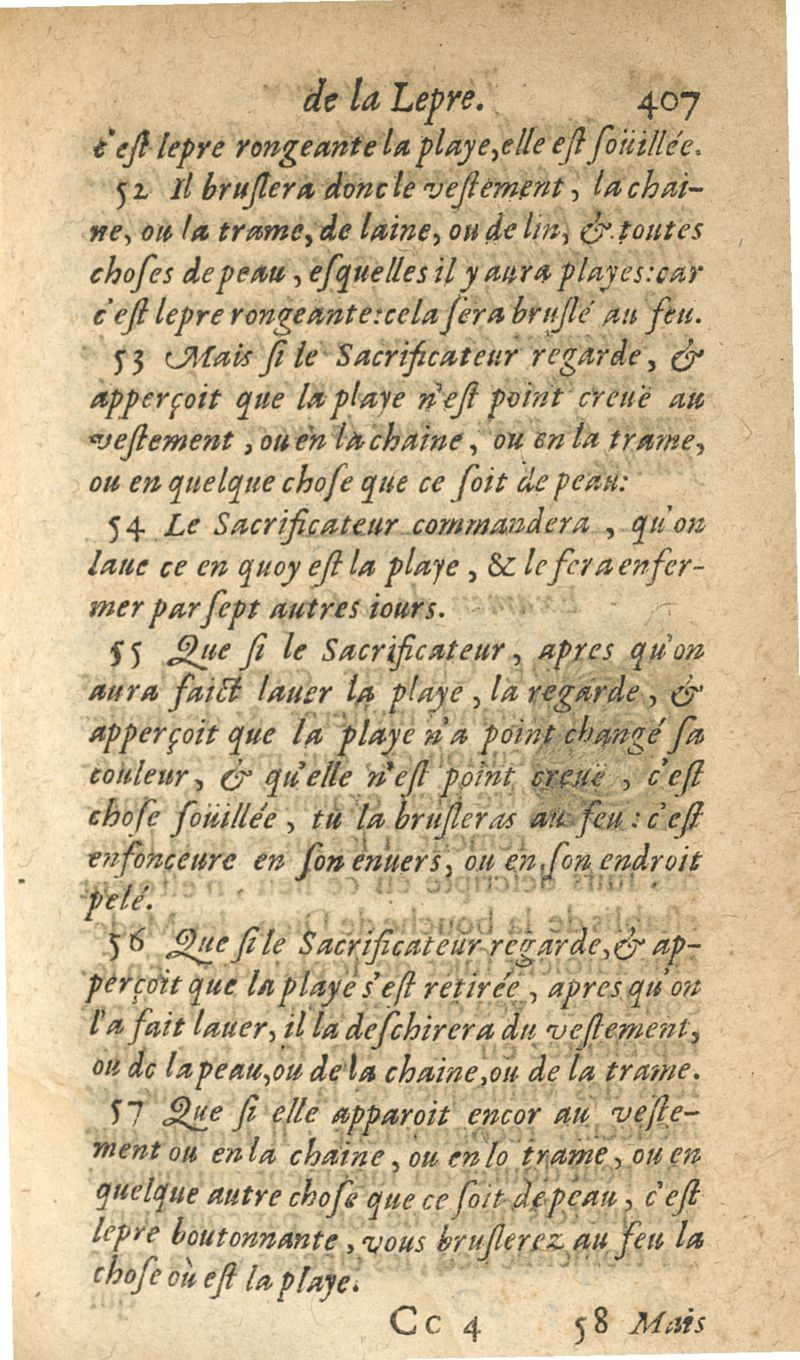 de la Lepre. 407
c'eſt lepre rongeante la playe, elle eſt ſoüillée.
52 Il bruſlera donc le veſtement, la chai-
ne, ou la trame, de laine, ou de lin, & toutes
choſes de peau, eſquelles il y aura playes: car
c'eſt lepre rongeante: cela ſera bruſlé au feu.
53 Mais ſi le Sacrificateur regarde, &
apperçoit que la playe n'eſt point creuë au
veſtement, ou en la chaine, ou en la trame,
ou en quelque choſe que ce ſoit de peau:
54 Le Sacrificateur commandera, qu'on
laue ce en quoy eſt la playe, & le fera enfer-
mer par ſept autres iours.
55 Que ſi le Sacrificateur, apres qu'on
aura faict lauer la playe, la regarde, &
apperçoit que la playe n'a point changé ſa
couleur, & qu'elle n'eſt point creuë, c'eſt
choſe ſoüillée, tu la bruſleras au feu: c'eſt
enfonceure en ſon enuers, ou en ſon endroit
pelé.
56 Que ſi le Sacrificateur regarde, & ap-
perçoit que la playe s'eſt retirée, apres qu'on
l'a fait lauer, il la deſchirera du veſtement,
ou de la peau, ou de la chaine, ou de la trame.
57 Que ſi elle apparoit encor au veſte-
ment ou en la chaine, ou en lo trame, ou en
quelque autre choſe que ce ſoit de peau, c'eſt
lepre boutonnante, vous bruſlerez au feu la
choſe où eſt la playe.
Cc 4 58 Mais